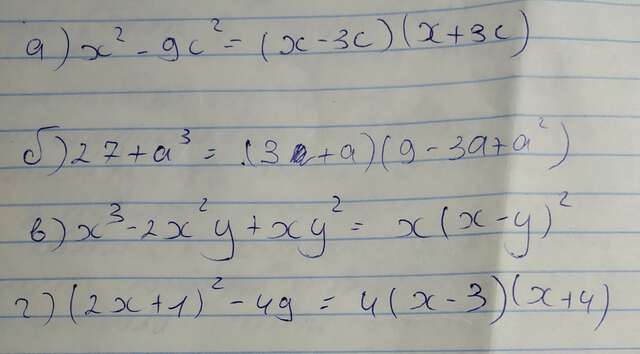 а) x² - 9c² = (x - 3c)(x + 3c)
б) 27 + a³ = (3 + a)(9 - 3a + a²)
в) x³ - 2x²y + xy² = x(x - y)²
г) (2x + 1)² - 49 = 4(x - 3)(x + 4)